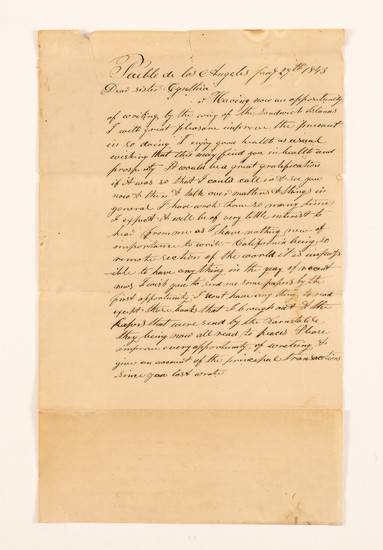 Pueblo de los Angeles Jany 27th 1843
Dear sister Cynthia
Having now an oppertunity
of writing by the way of the Sandwich Islands
I with great pleasure improve the present
in so doing I enjoy good health as usual
wishing that this may find you in health and
prosperity It would be a great gratification
if it was so that I could call in & see you
now & then & talk over matters & things in
general I have wrote home so many times
I expect it will be of very little interest to
hear from me as I have nothing new of
importance to write California being so
remote section of the world it is impos
ible to have any thing in the way of recent
news I wish you to send me some papers by the
first oppertunity I dont have any thing to read
exept those books that I brought out & the
papers that were send by the Barnstable
they being now all read to pieces Please
improve every oppertunity of writeing &
give an account of the principal transactions
since you last wrote